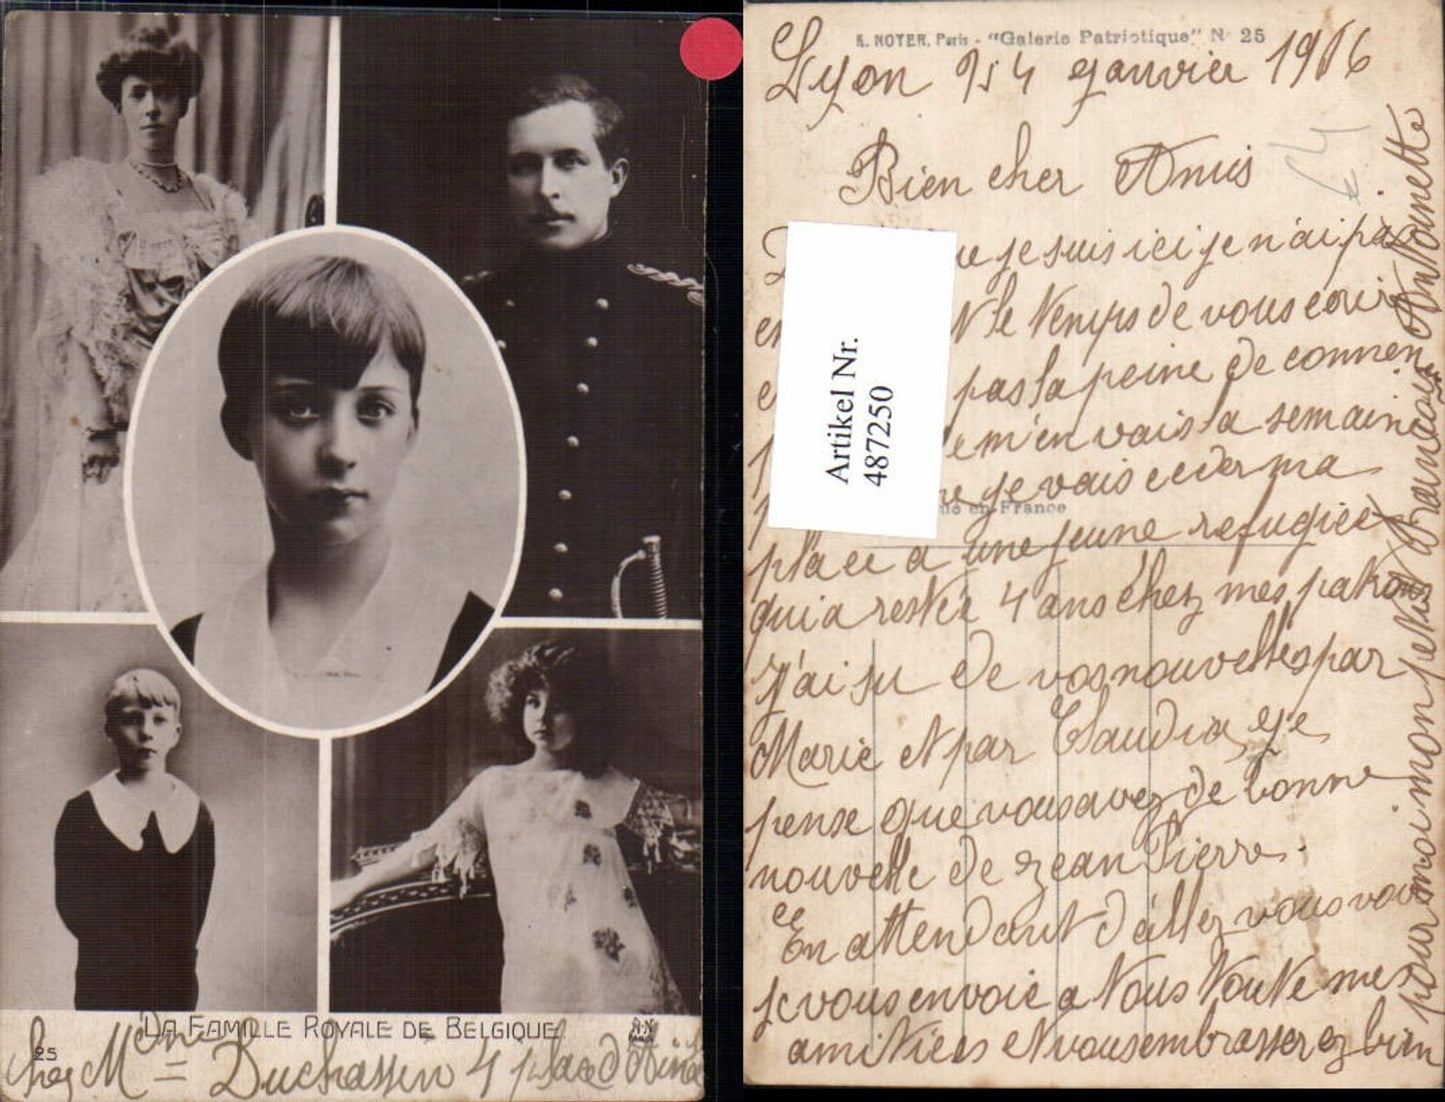 LA FAMILLE ROYALE DE BELGIQUE
A.N
PARIS
25
chez Mme Duchassin 4 place
A. NOYER, Paris - "Galerie Patriotique" N° 25
Lyon le 4 ganvier 1916
Bien cher Amis
que je suis ici je n'ai pas
le temps de vous ecrir
pas la peine de commen
m'en vais la semaine
je vais ceder ma
ué en France
place a une jeune refugiee
qui a restée 4 ans chez mes patrons
J'ai su de vos nouvelles par
Marie et par Claudia, ge
pense que vous avez de bonne
nouvelle de gean Pierre.
En attendant d'allez vous voir
je vous envoie a tous toute mes
amities et vous embrasserez bien
pour moi mon petit Francois Antoinette
Artikel Nr.
487250